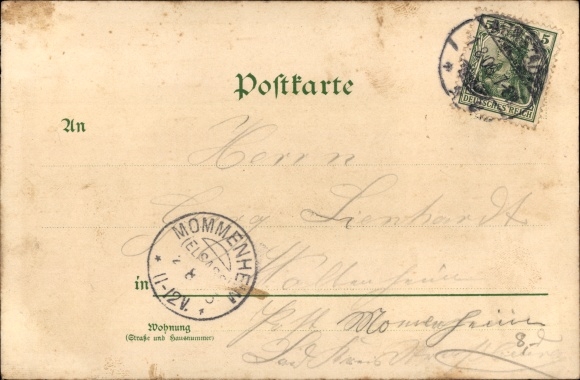 5 5
DEUTSCHES REICH
Postkarte
An
Herrn
Georg Lienhardt
MOMMENHEIM
(ELSASS)
11-12V.
in Wallenheim
Wohnung
(Straße und Hausnummer)
Post Mommenheim
8.
Land Kreis